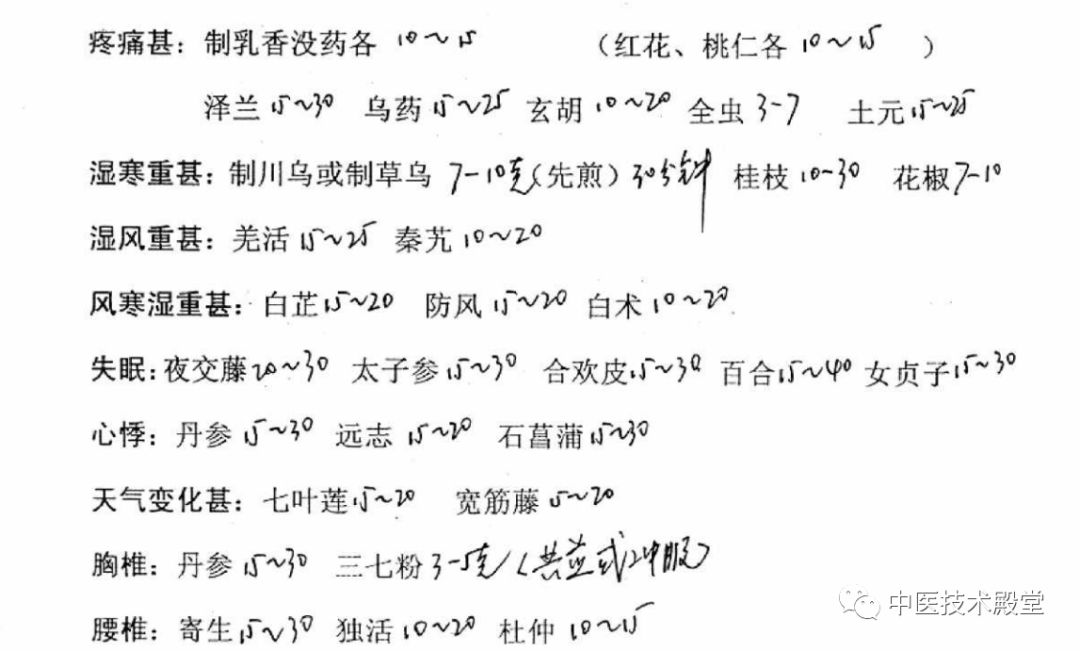 疼痛甚：制乳香没药各 10～15 （红花、桃仁各 10～15 ）
泽兰 15～30 乌药 15～25 玄胡 10～20 全虫 3-7 土元 15～25
湿寒重甚：制川乌或制草乌 7-10克（先煎）30分钟 桂枝 10-30 花椒 7-10
湿风重甚：羌活 15～25 秦艽 10～20
风寒湿重甚：白芷 15～20 防风 15～20 白术 10～20
失眠：夜交藤 20～30 太子参 15～30 合欢皮 15～30 百合 15～40 女贞子 15～30
心悸：丹参 15～30 远志 15～20 石菖蒲 15～30
天气变化甚：七叶莲 15～20 宽筋藤 15～20
胸椎：丹参 15～30 三七粉 3-5克（冲服）
腰椎：寄生 15～30 独活 10～20 杜仲 10～15
中医技术殿堂